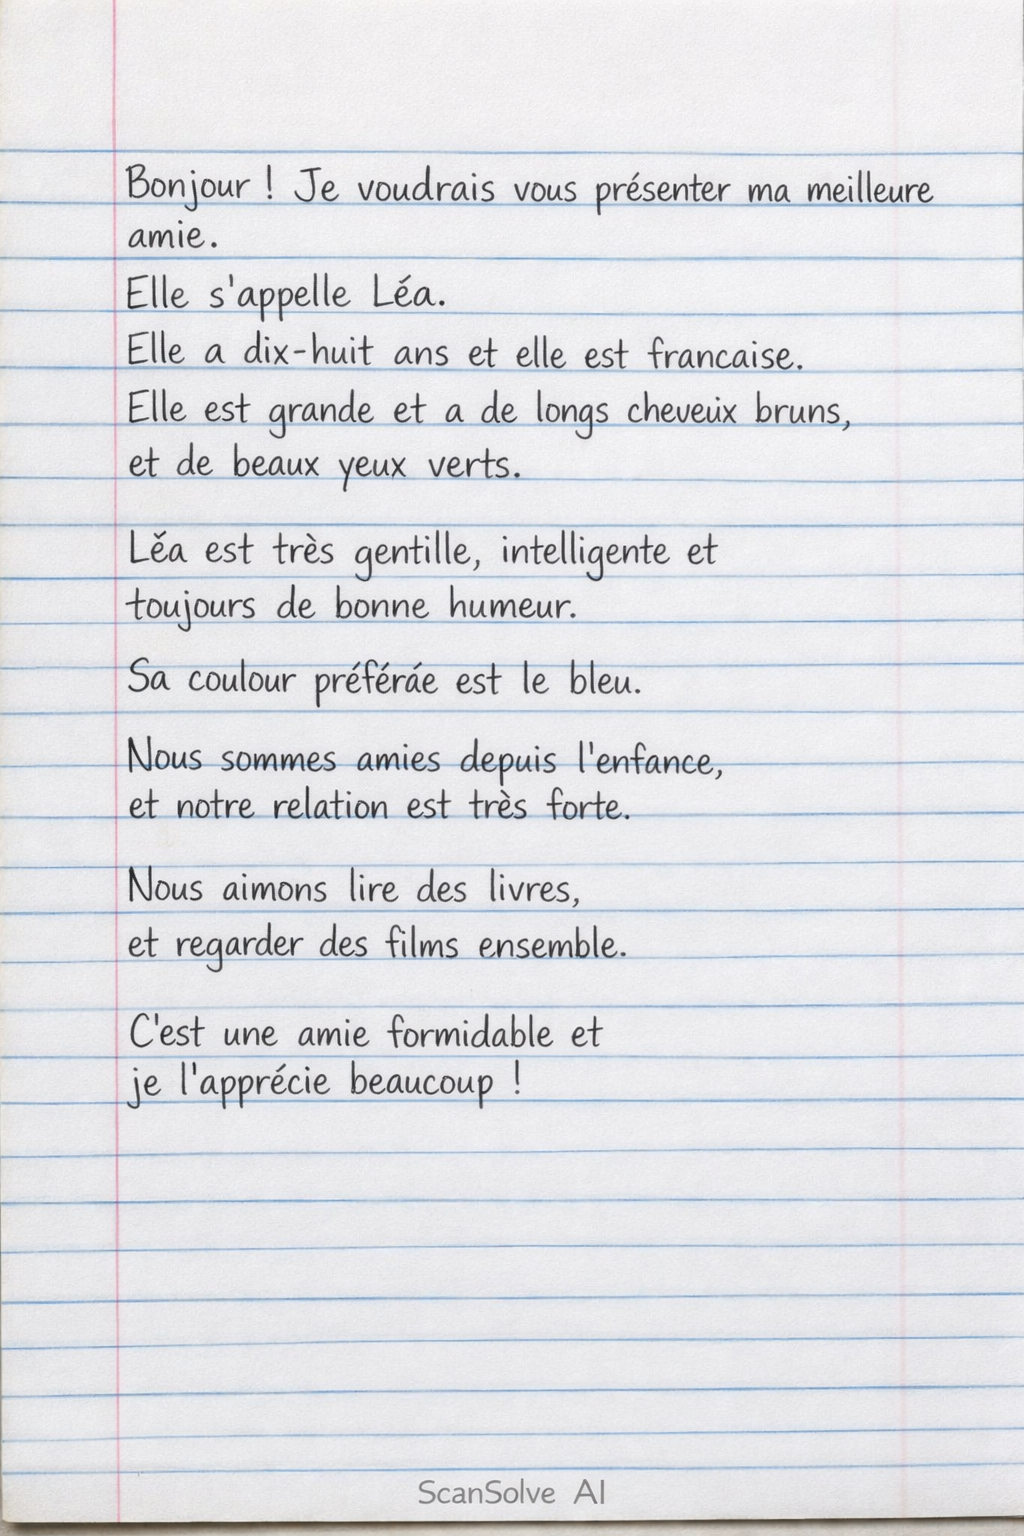 Bonjour ! Je voudrais vous présenter ma meilleure
amie.
Elle s'appelle Léa.
Elle a dix-huit ans et elle est francaise.
Elle est grande et a de longs cheveux bruns,
et de beaux yeux verts.
Lěa est très gentille, intelligente et
toujours de bonne humeur.
Sa coulour préféráe est le bleu.
Nous sommes amies depuis l'enfance,
et notre relation est très forte.
Nous aimons lire des livres,
et regarder des films ensemble.
C'est une amie formidable et
je l'apprécie beaucoup !
ScanSolve AI